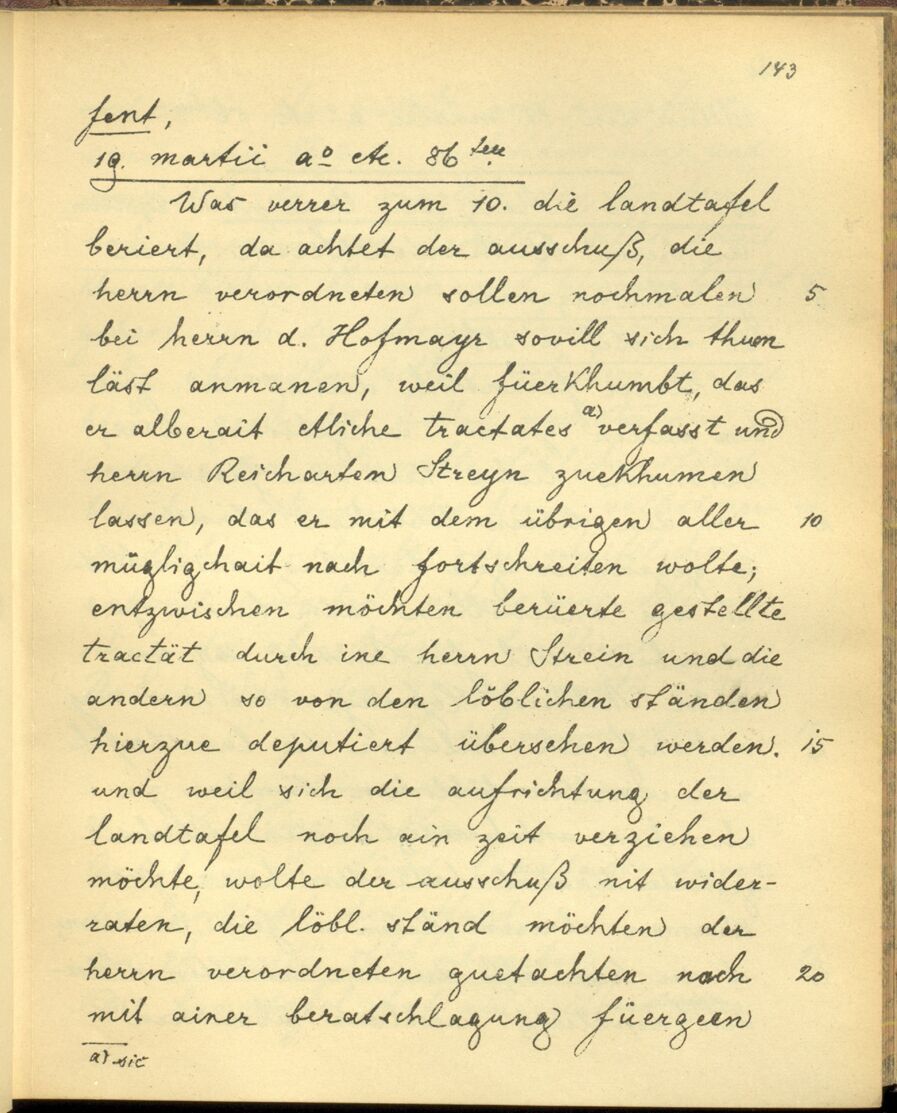 143
fent,
19. martii aº etc. 86ten
Was verrer zum 10. die landtafel
beriert, da achtet der ausschuß, die
herrn verordneten sollen nochmalen 5
bei herrn d. Hofmayr sovill sich thuen
läst anmanen, weil füerkhumbt, das
er alberait etliche tractates a) verfasst und
herrn Reicharten Streyn zuekhumen
lassen, das er mit dem übrigen aller 10
mügligchait nach fortschreiten wolte;
entzwischen möchten berüerte gestellte
tractät durch ine herrn Strein und die
andern so von den löblichen ständen
hierzue deputiert übersehen werden. 15
und weil sich die aufrichtung der
landtafel noch ain zeit verziehen
möchte, wolte der ausschuß nit wider-
raten, die löbl. ständ möchten der
herrn verordneten guetachten nach 20
mit ainer beratschlagung füergeen
a) sic